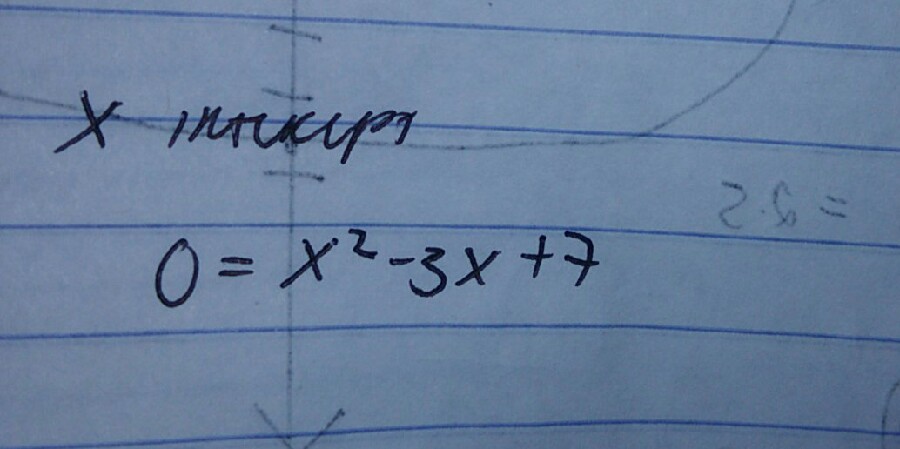 X intercept
0 = x² - 3x + 7